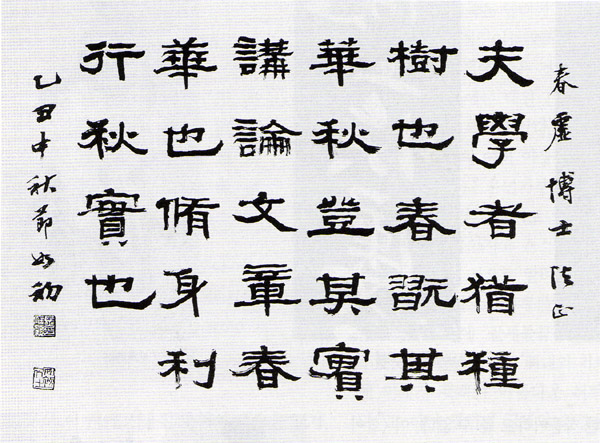 春虛博士法正
夫學者猶種
樹也春翫其
華秋登其實
講論文章春
華也脩身利
行秋實也
乙丑中秋節如初